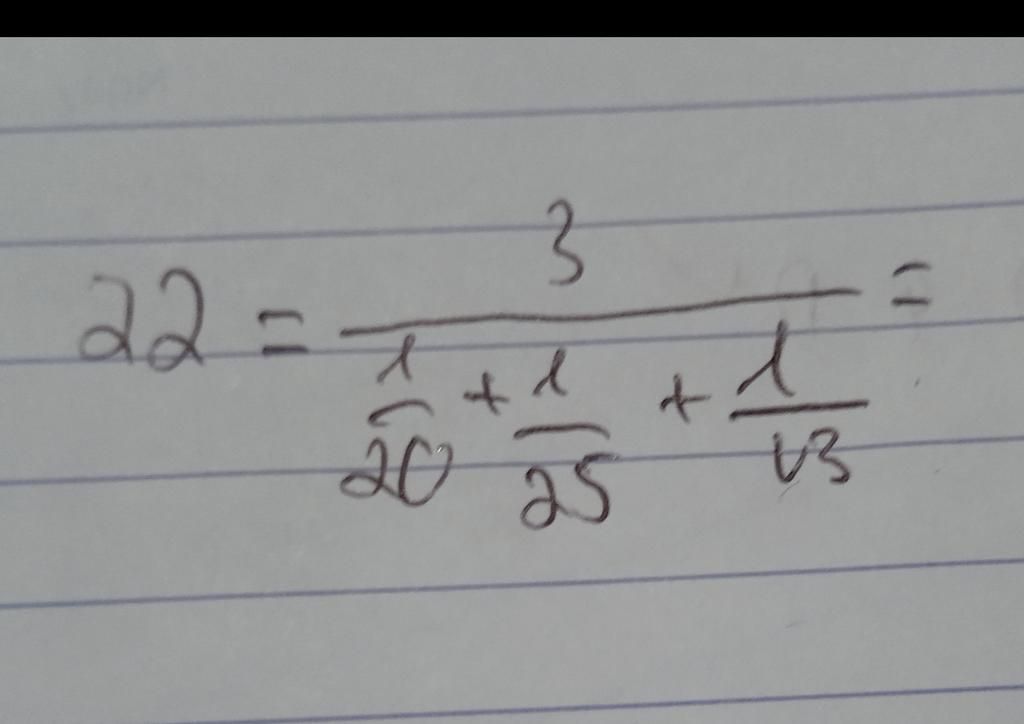 22 = 3 / (1/20 + 1/25 + 1/v3) =